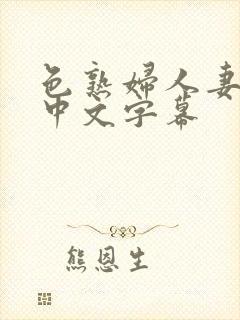 色熟婦人妻
中文字幕
熊恩生